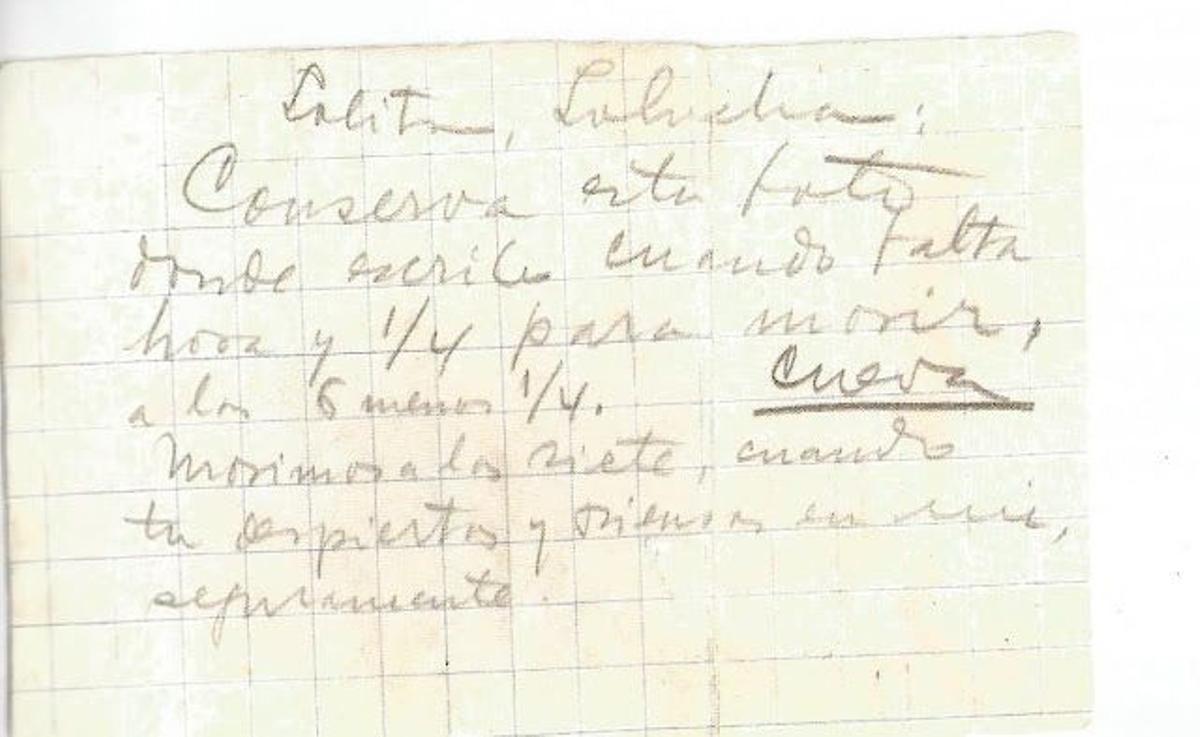 Lolita, Lolucha:
Conserva esta foto
donde escribo cuando falta
hora y 1/4 para morir,
a las 6 menos 1/4.
Cueva
Morimos a las siete, cuando
tu despiertas y piensas en mi,
seguramente.